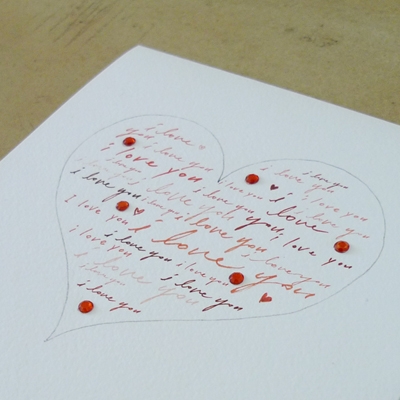 i love
you i love you
i love you
i love you
i love you
i love you
i love you
i love you
i love
i love you
i love you
i love you
i love you
i love you
i love you
i love you
i love you
i love you
i love you
i love you
i love you
i love you
i love you